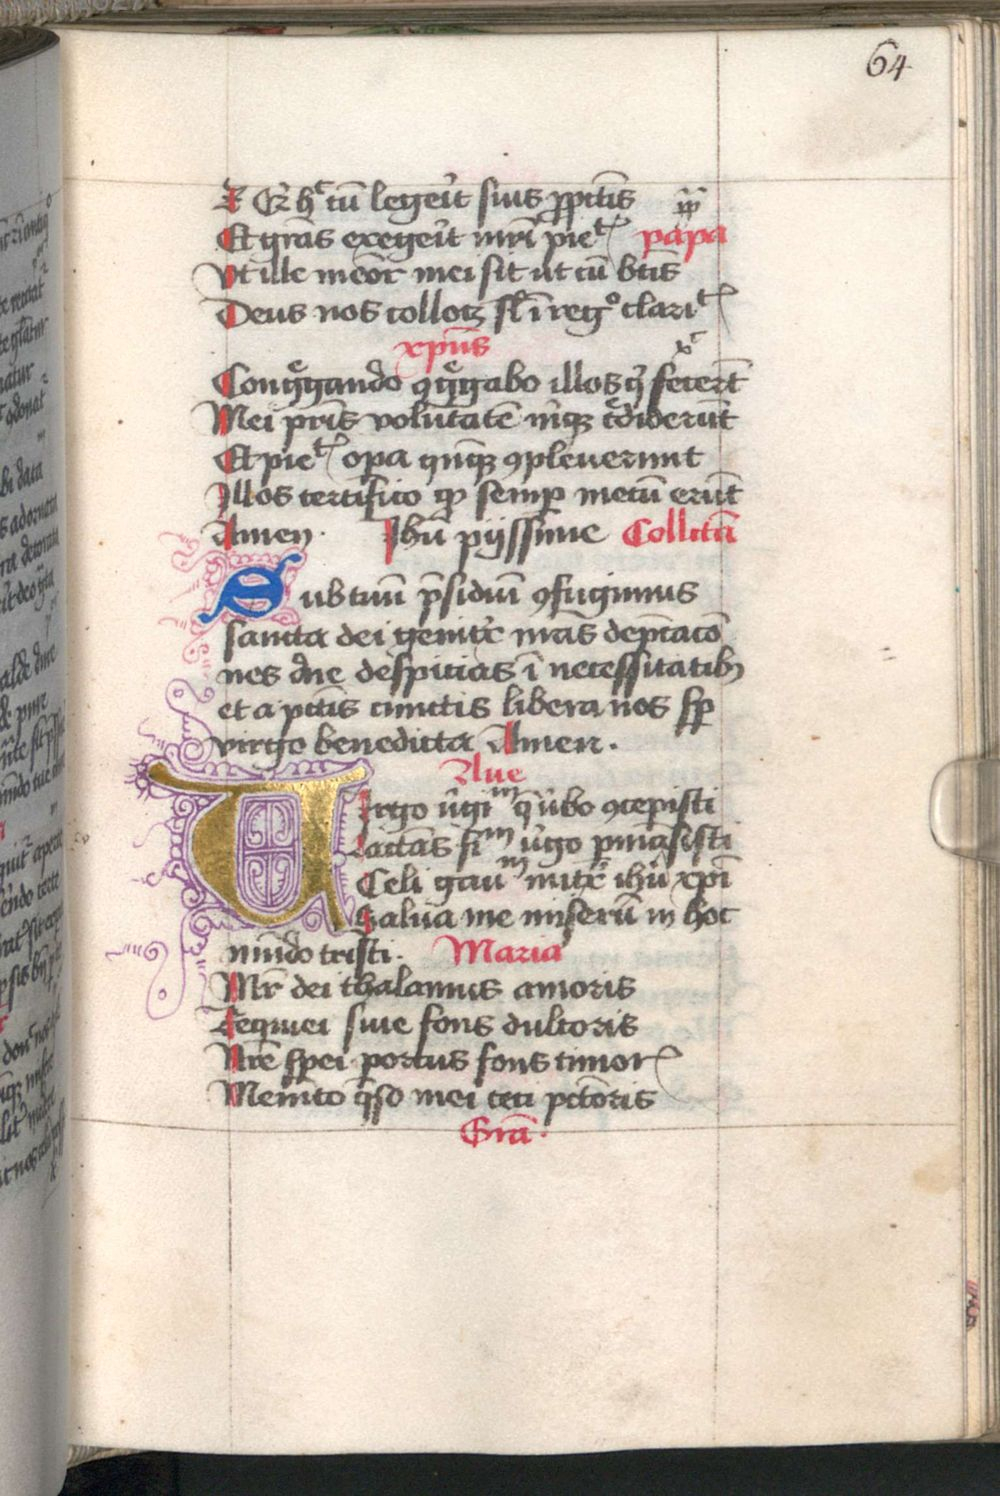 64
Et qui hec cum legerit suis ppĉtis
Et grās exegerit nnrī piet papa
Vt ille memor mei sit ut cū btīs
Deus nos collocꝫ sʳ ī regº claritͭ
xpūs
Congͤgando ꝯgͤgabo illos qͥ fecert̄
Mei pr̄is volūtatē mͥqꝫ cͤdiderūt
Et pietͭ opa qn̄qꝫ ꝯpleuerunt
Illos certifico qꝫ semp̲ mecū erūt
Amen. Ihū pijssime Collc̄tā
Sub tuū p̄sidiū ꝯfugimus
sancta dei genitͥx nr̄as dep̄cacō
nes dn̄e despicias ī necessitatibꝫ
et a pc̄tis cunctis libera nos sp̲
virgo benedicta Amen.
Aue
Virgo v̓giᵐ q̄ v̓bo ꝯcepisti
Lactās fiᵐ v̓go p̲māsisti
Celi gauᵐ nutͥx ihū xpī
Salua me miserū in hoc
mūdo tristi. Maria
Mr̄ dei thalamus amoris
Requiei siue fons dulcoris
Nr̄e spei portus fons timorͭ
Memēto q̄so mei ceci pc̄toris
Grā.